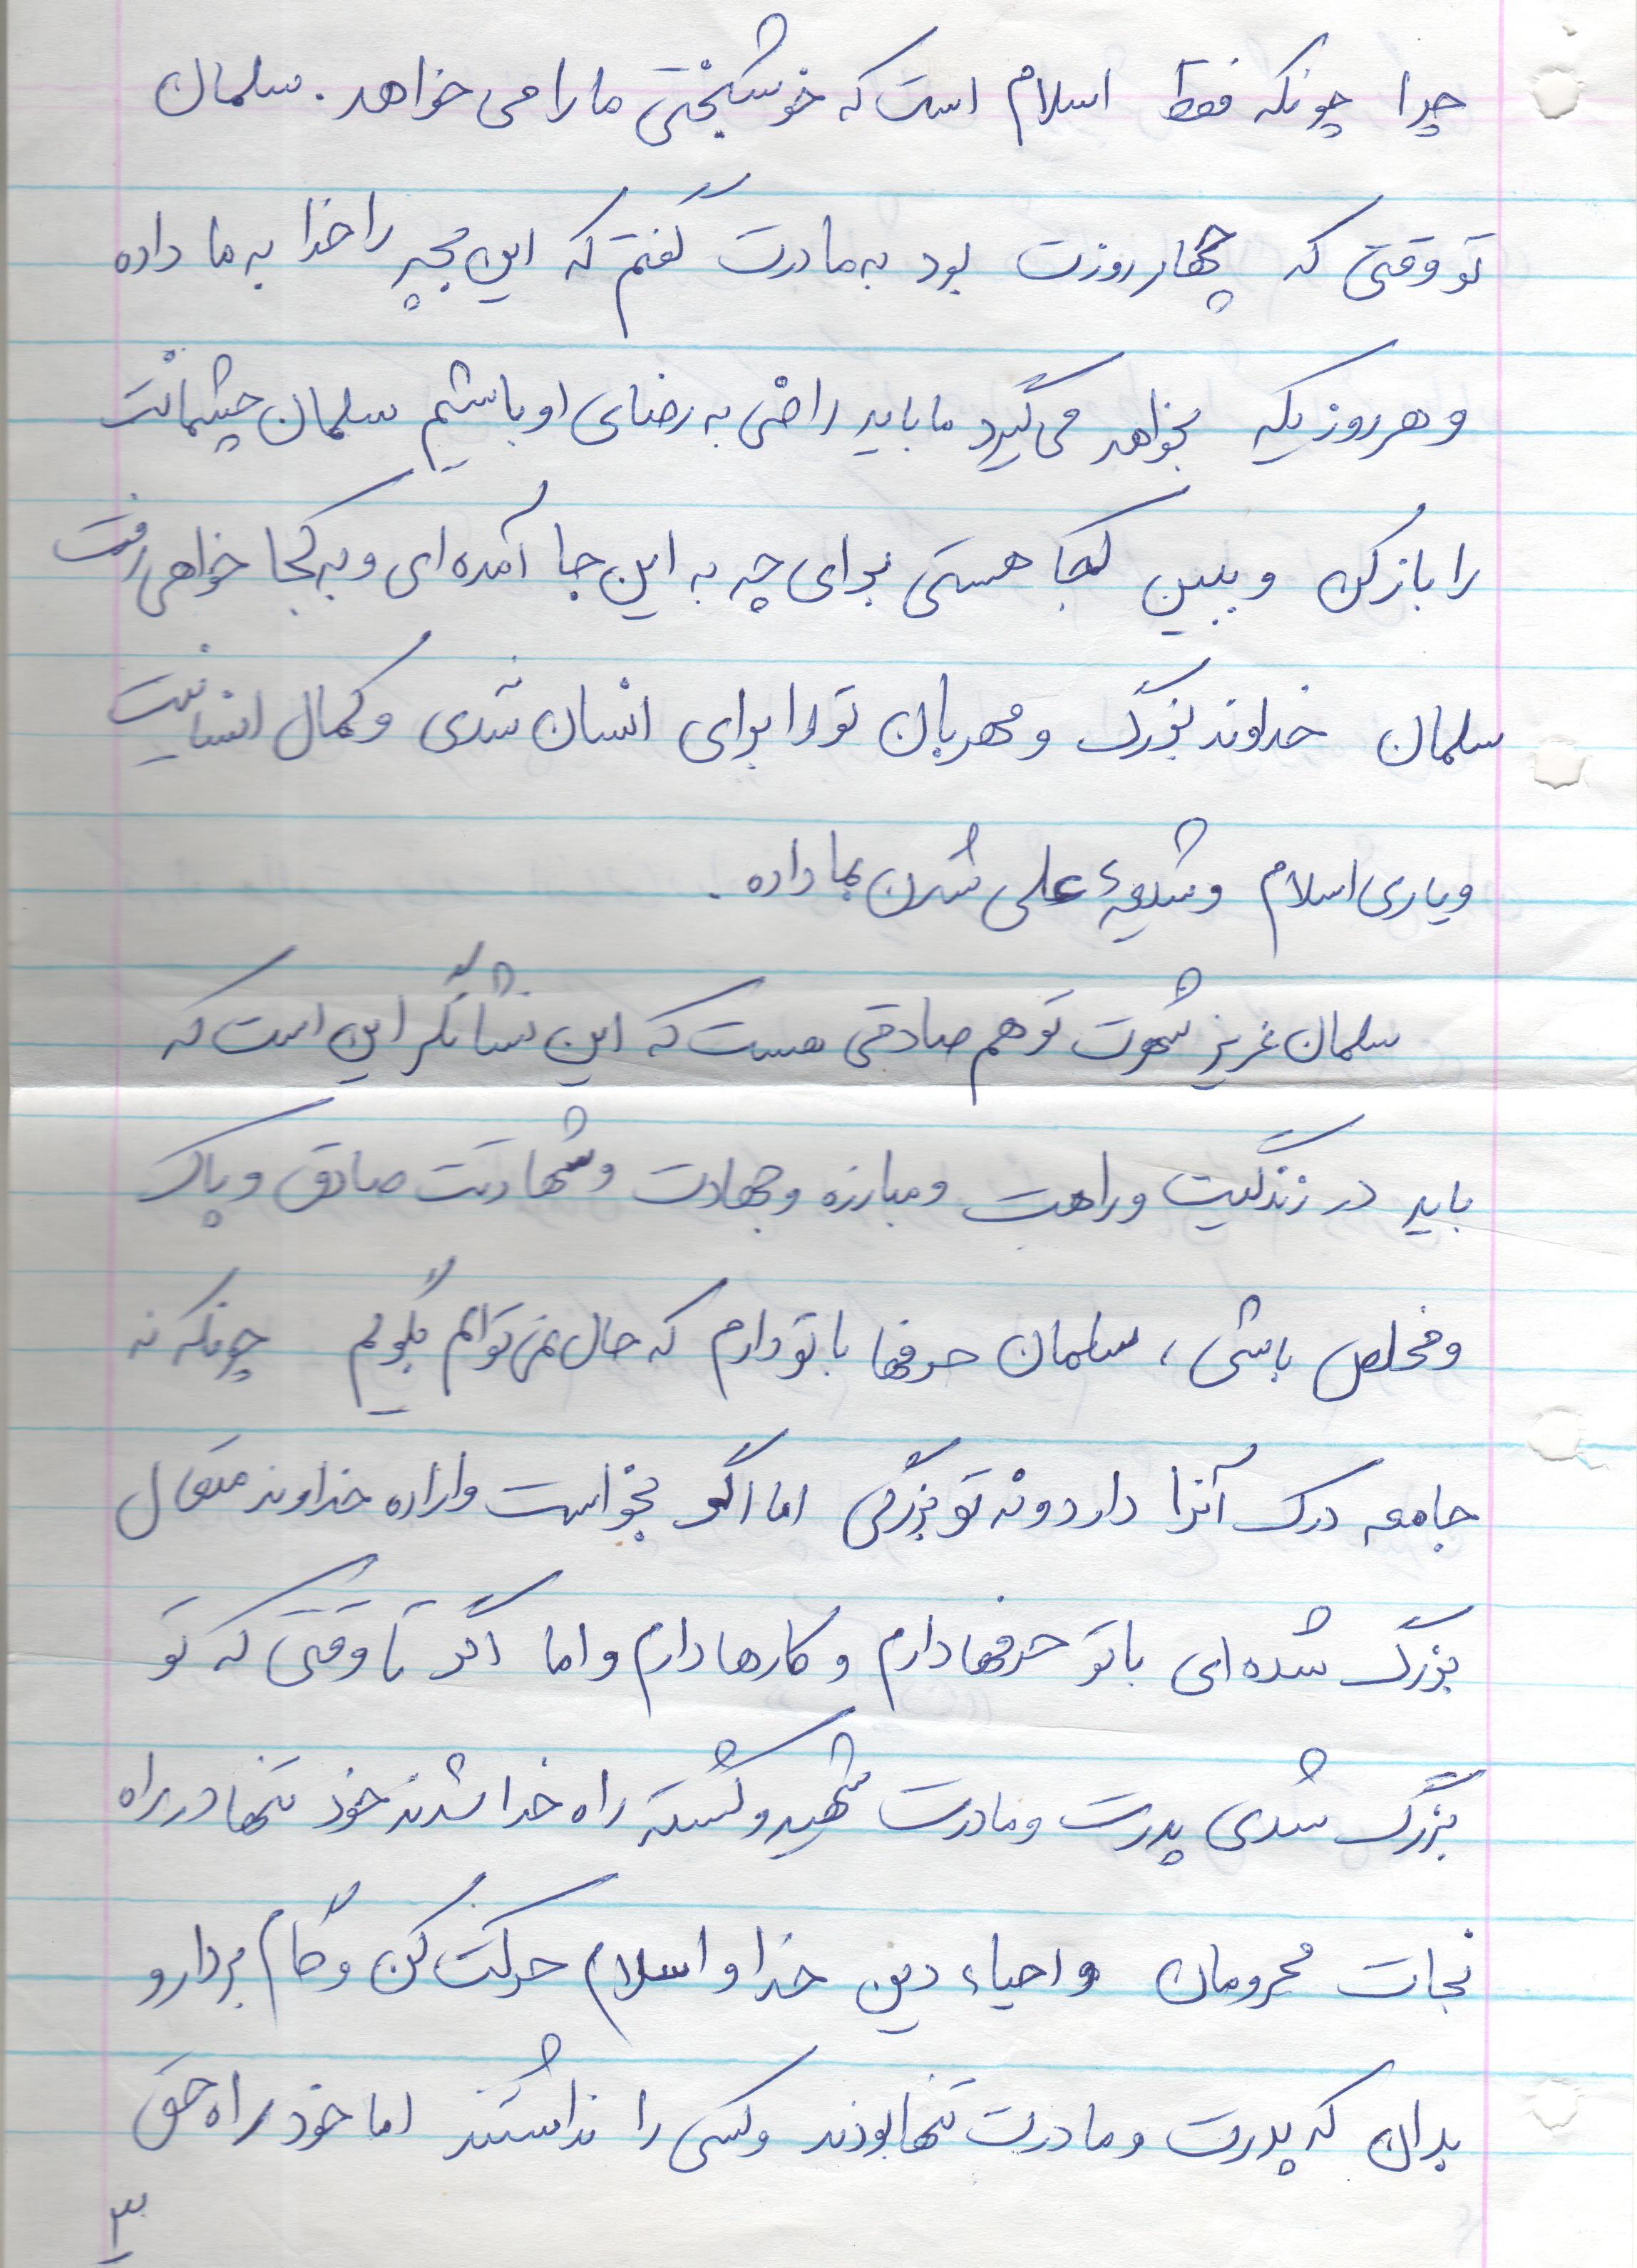 چرا چونکه فقط اسلام است که خوشبختی ما را می خواهد. سلمان
تو وقتی که چهار روزت بود به مادرت گفتم که این بچه را خدا به ما داده
و هر روزیکه بخواهد می گیرد ما باید راضی به رضای او باشیم سلمان چشمانت
را باز کن و ببین کجا هستی برای چه به این جا آمده ای و به کجا خواهی رفت
سلمان خداوند بزرگ و مهربان تو را برای انسان شدن و کمال انسانیت
و یاری اسلام و شیعهٔ علی شدن بما داده.
سلمان عزیز شهرت تو هم صادقی هست که این نشانگر این است که
باید در زندگیت و راهت و مبارزه و جهادت و شهادتت صادق و پاک
و مخلص باشی، سلمان حرفها با تو دارم که حال نمی توانم بگویم چونکه نه
جامعه درک آنرا دارد و نه تو بزرگی اما اگر بخواست و اراده خداوند متعال
بزرگ شده ای با تو حرفها دارم و کارها دارم و اما اگر تا وقتی که تو
بزرگ شدی پدرت و مادرت شهید و کشته راه خدا شدند خود تنها در راه
نجات محرومان و احیاء دین خدا و اسلام حرکت کن و گام بردار و
بدان که پدرت و مادرت تنها بودند و کسی را نداشتند اما خود راه حق
۳